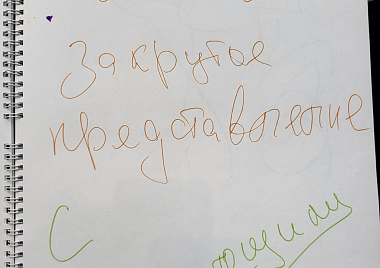 Закрутое
представление
С